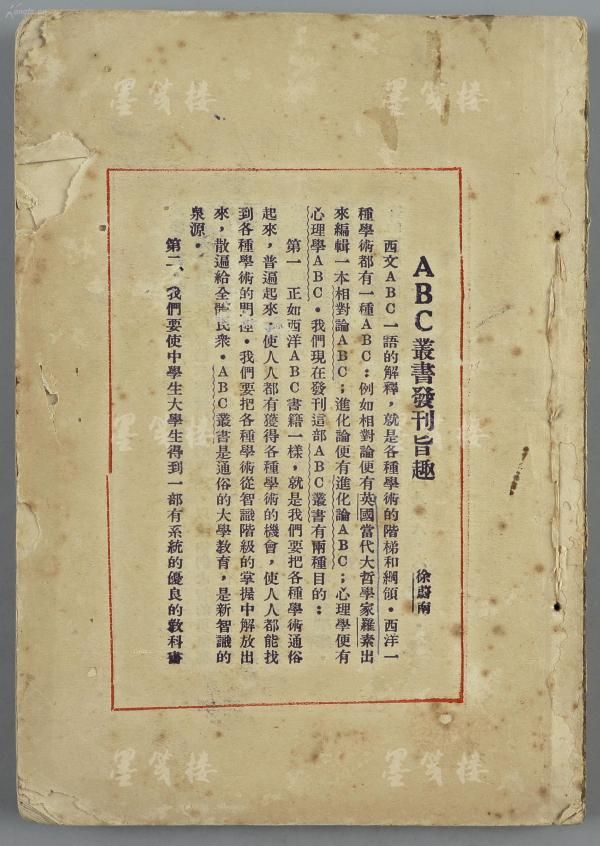 ABC叢書發刊旨趣
徐蔚南
西文ABC一語的解釋，就是各種學術的階梯和綱領。西洋一
種學術都有一種ABC；例如相對論便有英國當代大哲學家羅素出
來編輯一本相對論ABC；進化論便有進化論ABC；心理學便有
心理學ABC。我們現在發刊這部ABC叢書有兩種目的：
第一　正如西洋ABC書籍一樣，就是我們要把各種學術通俗
起來，普遍起來，使人人都有獲得各種學術的機會，使人人都能找
到各種學術的門徑。我們要把各種學術從智識階級的掌握中解放出
來，散遍給全體民衆。ABC叢書是通俗的大學教育，是新智識的
泉源。
第二、我們要使中學生大學生得到一部有系統的優良的教科書
墨笺楼
墨笺楼
墨笺楼
墨笺楼
墨笺楼
墨笺楼